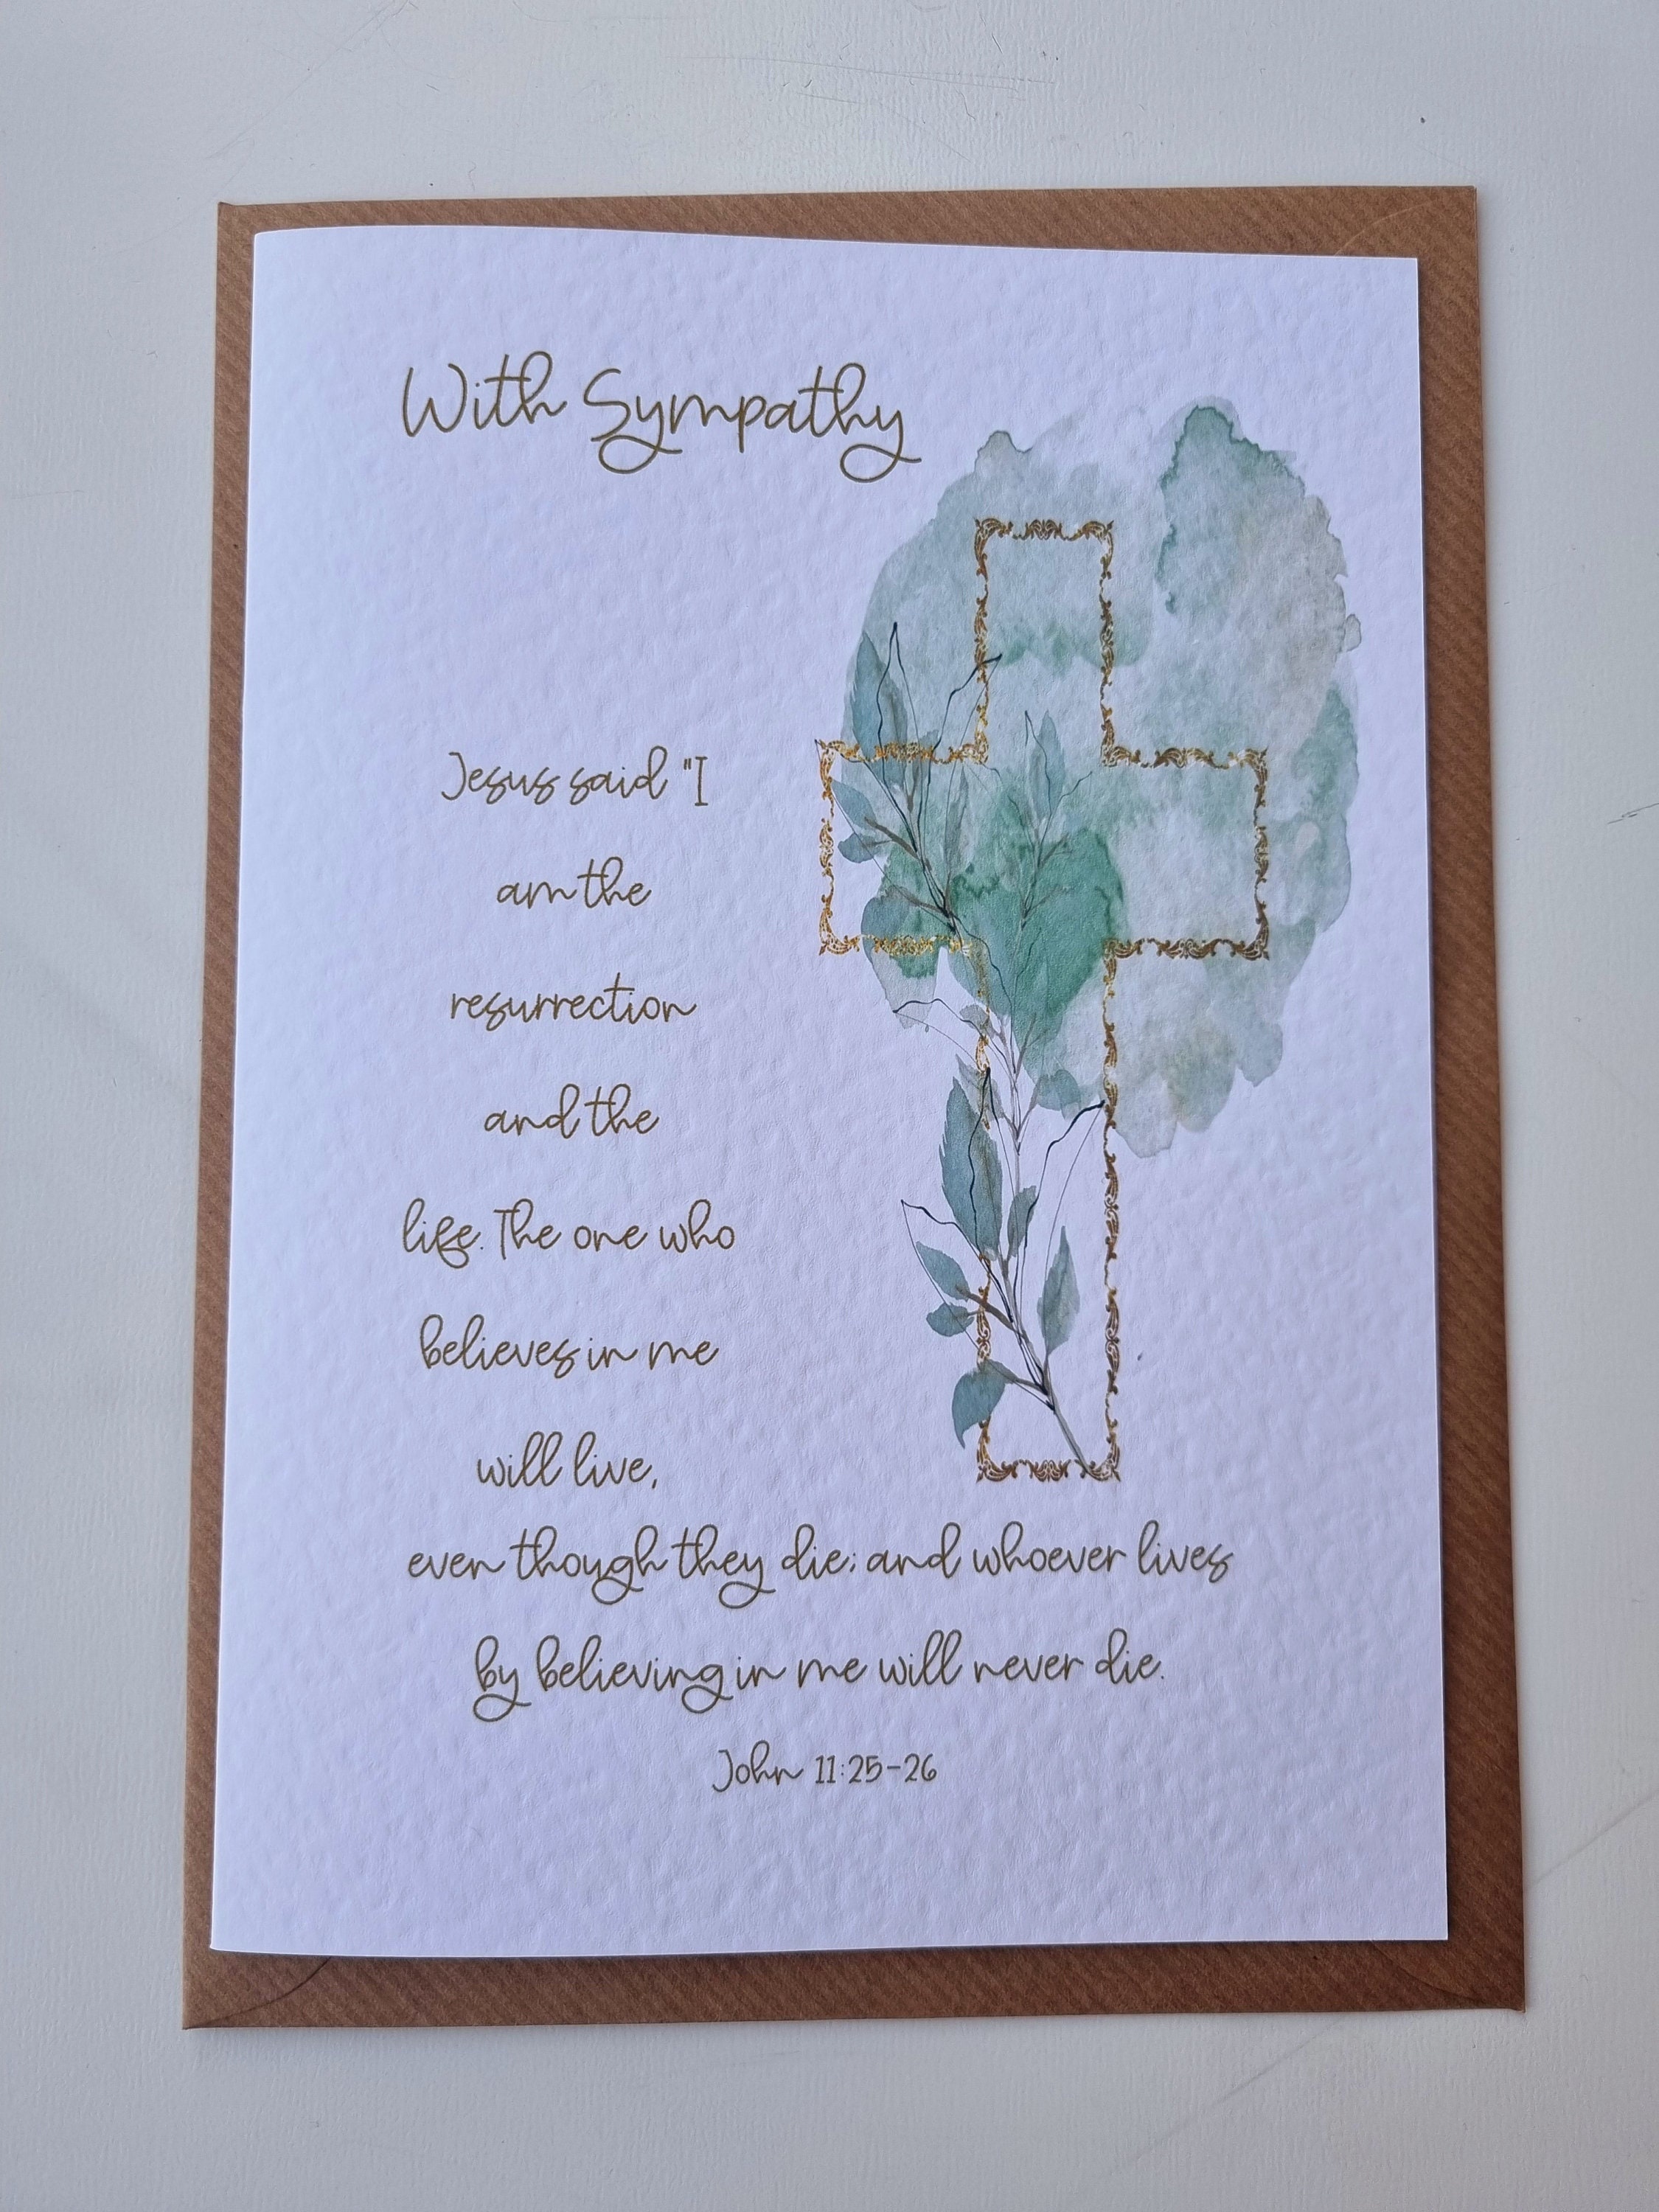 With Sympathy
Jesus said "I
am the
resurrection
and the
life. The one who
believes in me
will live,
even though they die; and whoever lives
by believing in me will never die.
John 11:25-26